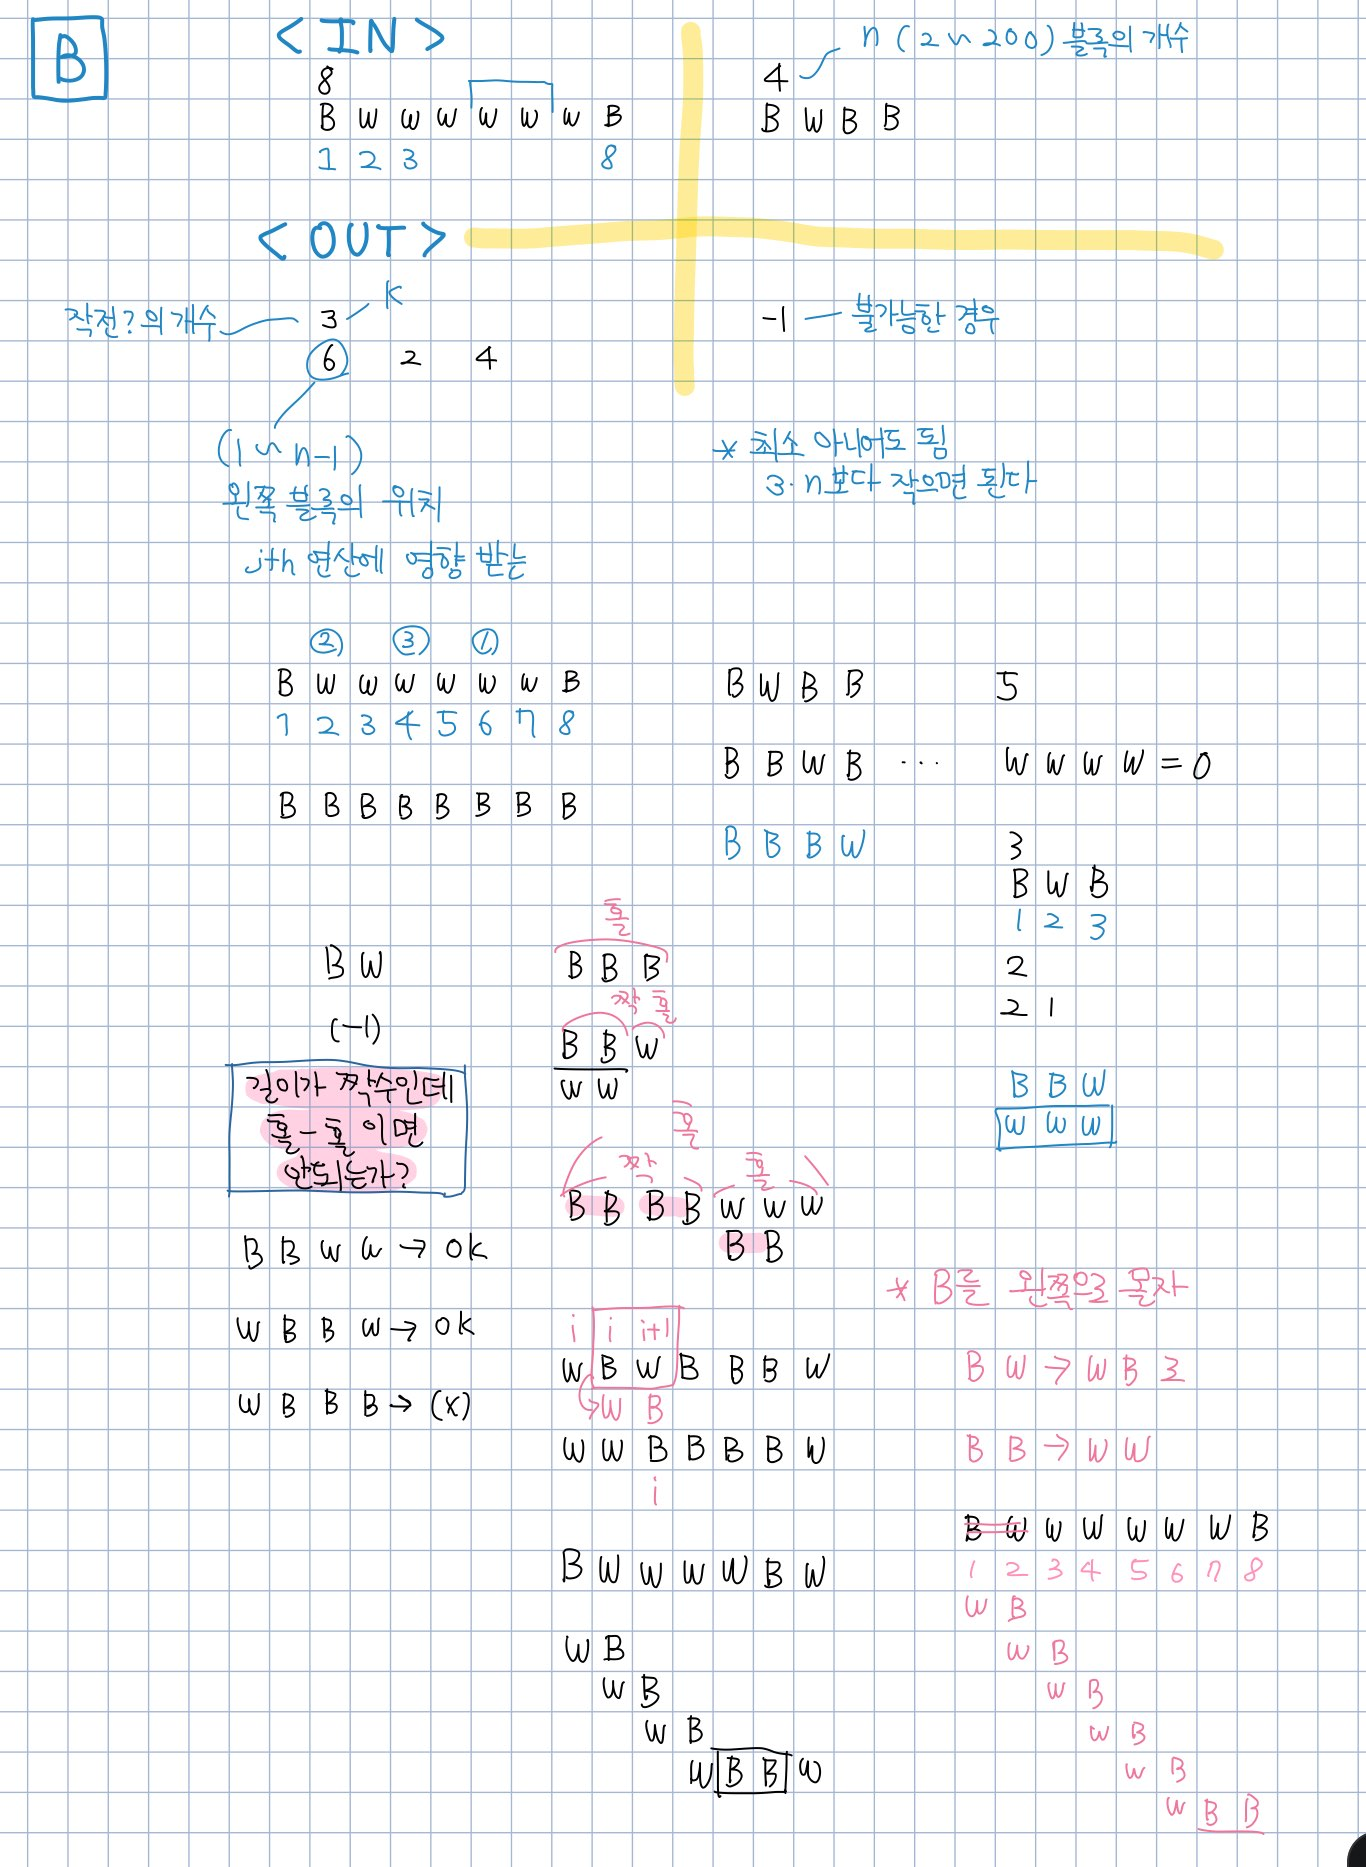 B
< IN >
8
B W W W W W W B
1 2 3 8
n ( 2 ~ 200 ) 블록의 개수
4
B W B B
< OUT >
작전?의 개수
3
K
6 2 4
(1 ~ n-1)
왼쪽 블록의 위치
jth 연산에 영향 받는
-1
불가능한 경우
* 최소 아니어도 됨
3·n보다 작으면 된다
② ③ ①
B W W W W W W B
1 2 3 4 5 6 7 8
B B B B B B B B
B W B B
B B W B ...
B B B W
5
W W W W = 0
3
B W B
1 2 3
2
2 1
B B W
W W W
B W
(-1)
길이가 짝수인데
홀-홀 이면
안되는가?
B B W W → OK
W B B W → OK
W B B B → (X)
홀
B B B
짝 홀
B B W
W W
홀
짝 홀
B B B B W W W
B B
i i i+1
W B W B B B W
W B
W W B B B B W
i
B W W W W B W
W B
W B
W B
W B B W
* B를 왼쪽으로 몰자
B W → W B
B B → W W
B W W W W W W B
1 2 3 4 5 6 7 8
W B
W B
W B
W B
W B
W B B